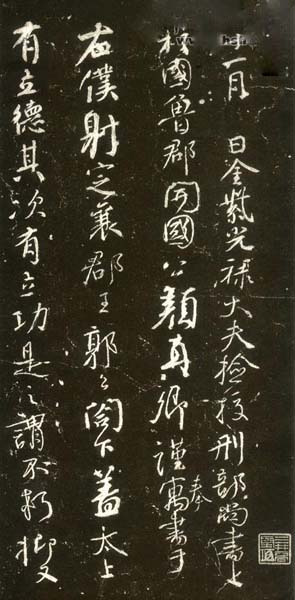 十一月 日金紫光禄大夫檢校刑部尚書上
柱國魯郡開國公顏真卿謹奉寓書于
右僕射定襄郡王郭公閤下蓋太上
有立德其次有立功是之謂不朽抑又